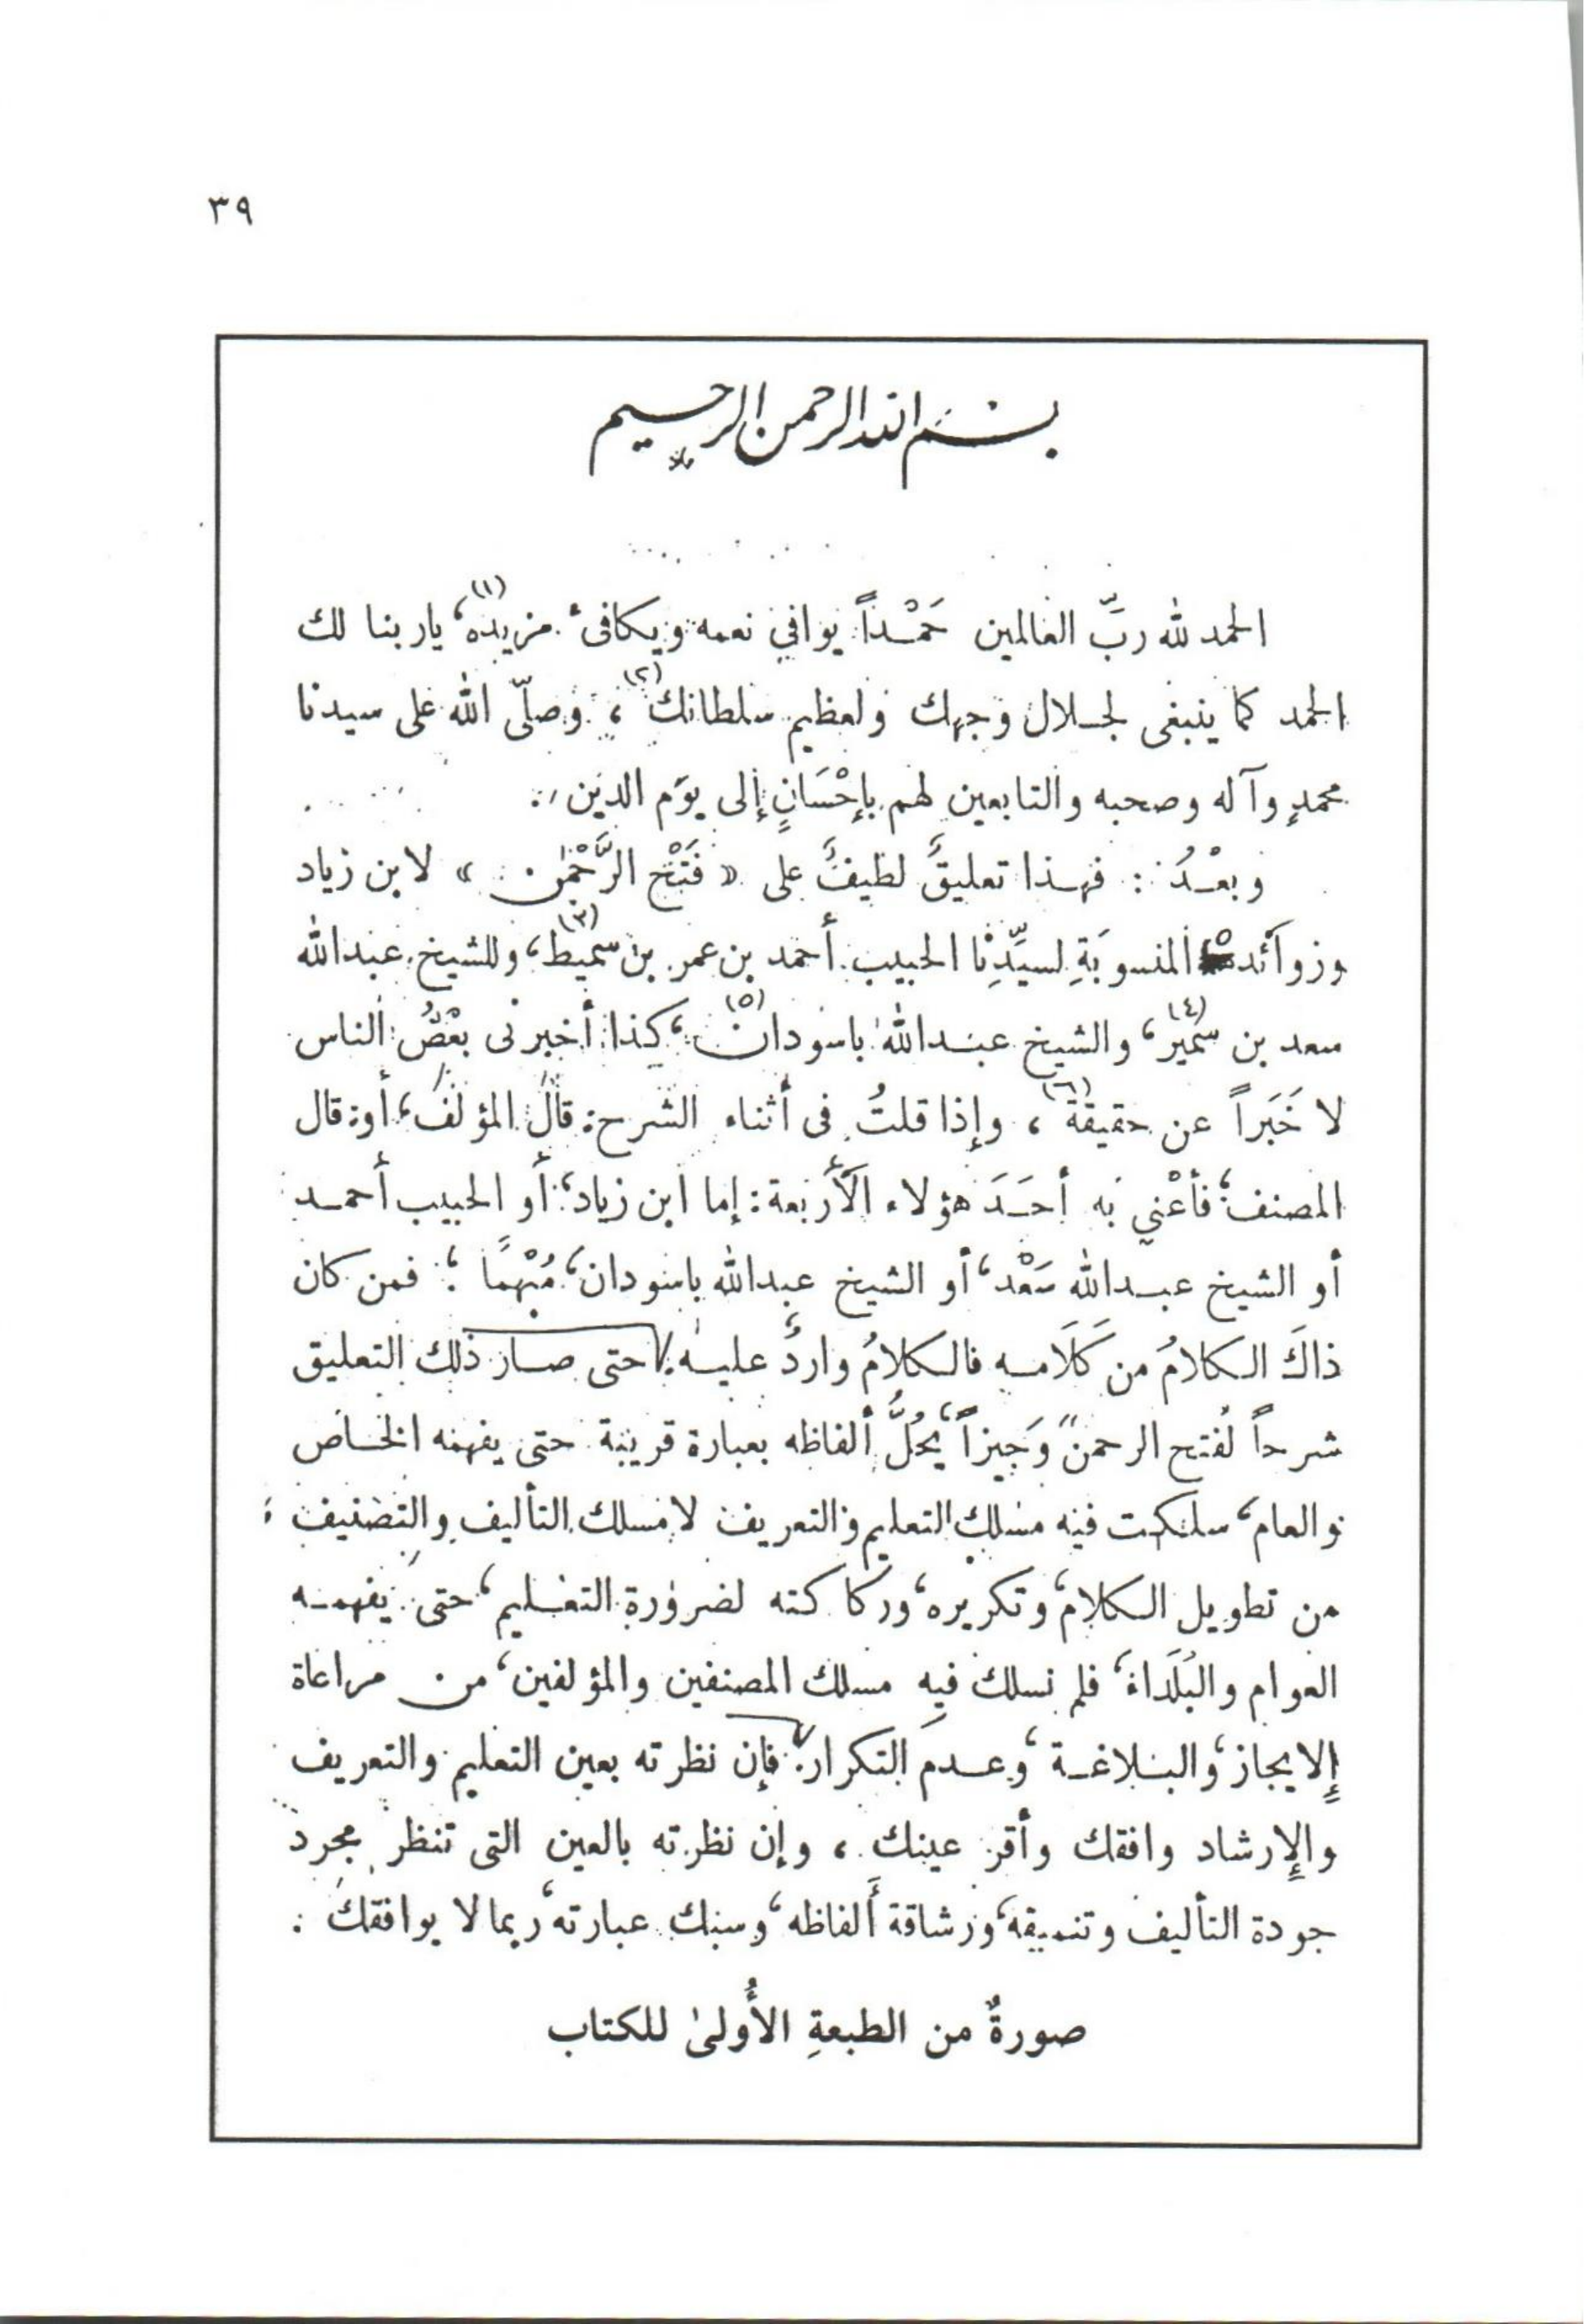 ٣٩
بسم الله الرحمن الرحيم
الحمد لله ربِّ العالمين حَمْداً يوافي نعمه ويكافئ مزيده(١)، ياربنا لك
الحمد كما ينبغى لجلال وجهك ولعظيم سلطانك(٢)، وصلّى الله على سيدنا
محمدٍ وآله وصحبه والتابعين لهم بإحْسَانٍ إلى يوم الدين.
وبعْدُ: فهذا تعليقٌ لطيفٌ على «فَتْح الرَّحْمٰن» لابن زياد
وزوائده المنسوبَةِ لسيِّدِنا الحبيب أحمد بن عمر بن سميط(٣)، وللشيخ عبدالله
سعد بن سُمَير(٤)، والشيخ عبدالله باسودان(٥)، كذا أخبرنى بعْضُ الناس
لا خَبَراً عن حقيقة(٦)، وإذا قلتُ فى أثناء الشرح: قال المؤلف، أو: قال
المصنف؛ فأعْني به أحَدَ هؤلاء الأربعة: إما ابن زياد، أو الحبيب أحمد
أو الشيخ عبدالله سَعْد، أو الشيخ عبدالله باسودان، مُبْهمًا؛ فمن كان
ذاكَ الكلامُ من كَلَامه فالكلامُ واردٌ عليه. حتى صار ذلك التعليق
شرحاً لفتح الرحمن وَجيزاً، يَحُلُّ ألفاظه بعبارة قريبة حتى يفهمه الخاص
والعام، سلكت فيه مسلك التعليم والتعريف لا مسلك التأليف والتصنيف؛
من تطويل الكلام، وتكريره، وركاكته لضرورة التعليم، حتى يفهمه
العوام والبُلَداء، فلم نسلك فيه مسلك المصنفين والمؤلفين، من مراعاة
الإيجاز، والبلاغة، وعدم التكرار. فإن نظرته بعين التعليم والتعريف
والإرشاد وافقك وأقر عينك، وإن نظرته بالعين التى تنظر مجرد
جودة التأليف وتنميقه، ورشاقة ألفاظه، وسبك عبارته، ربما لا يوافقك.
صورةٌ من الطبعةِ الأُولىٰ للكتاب